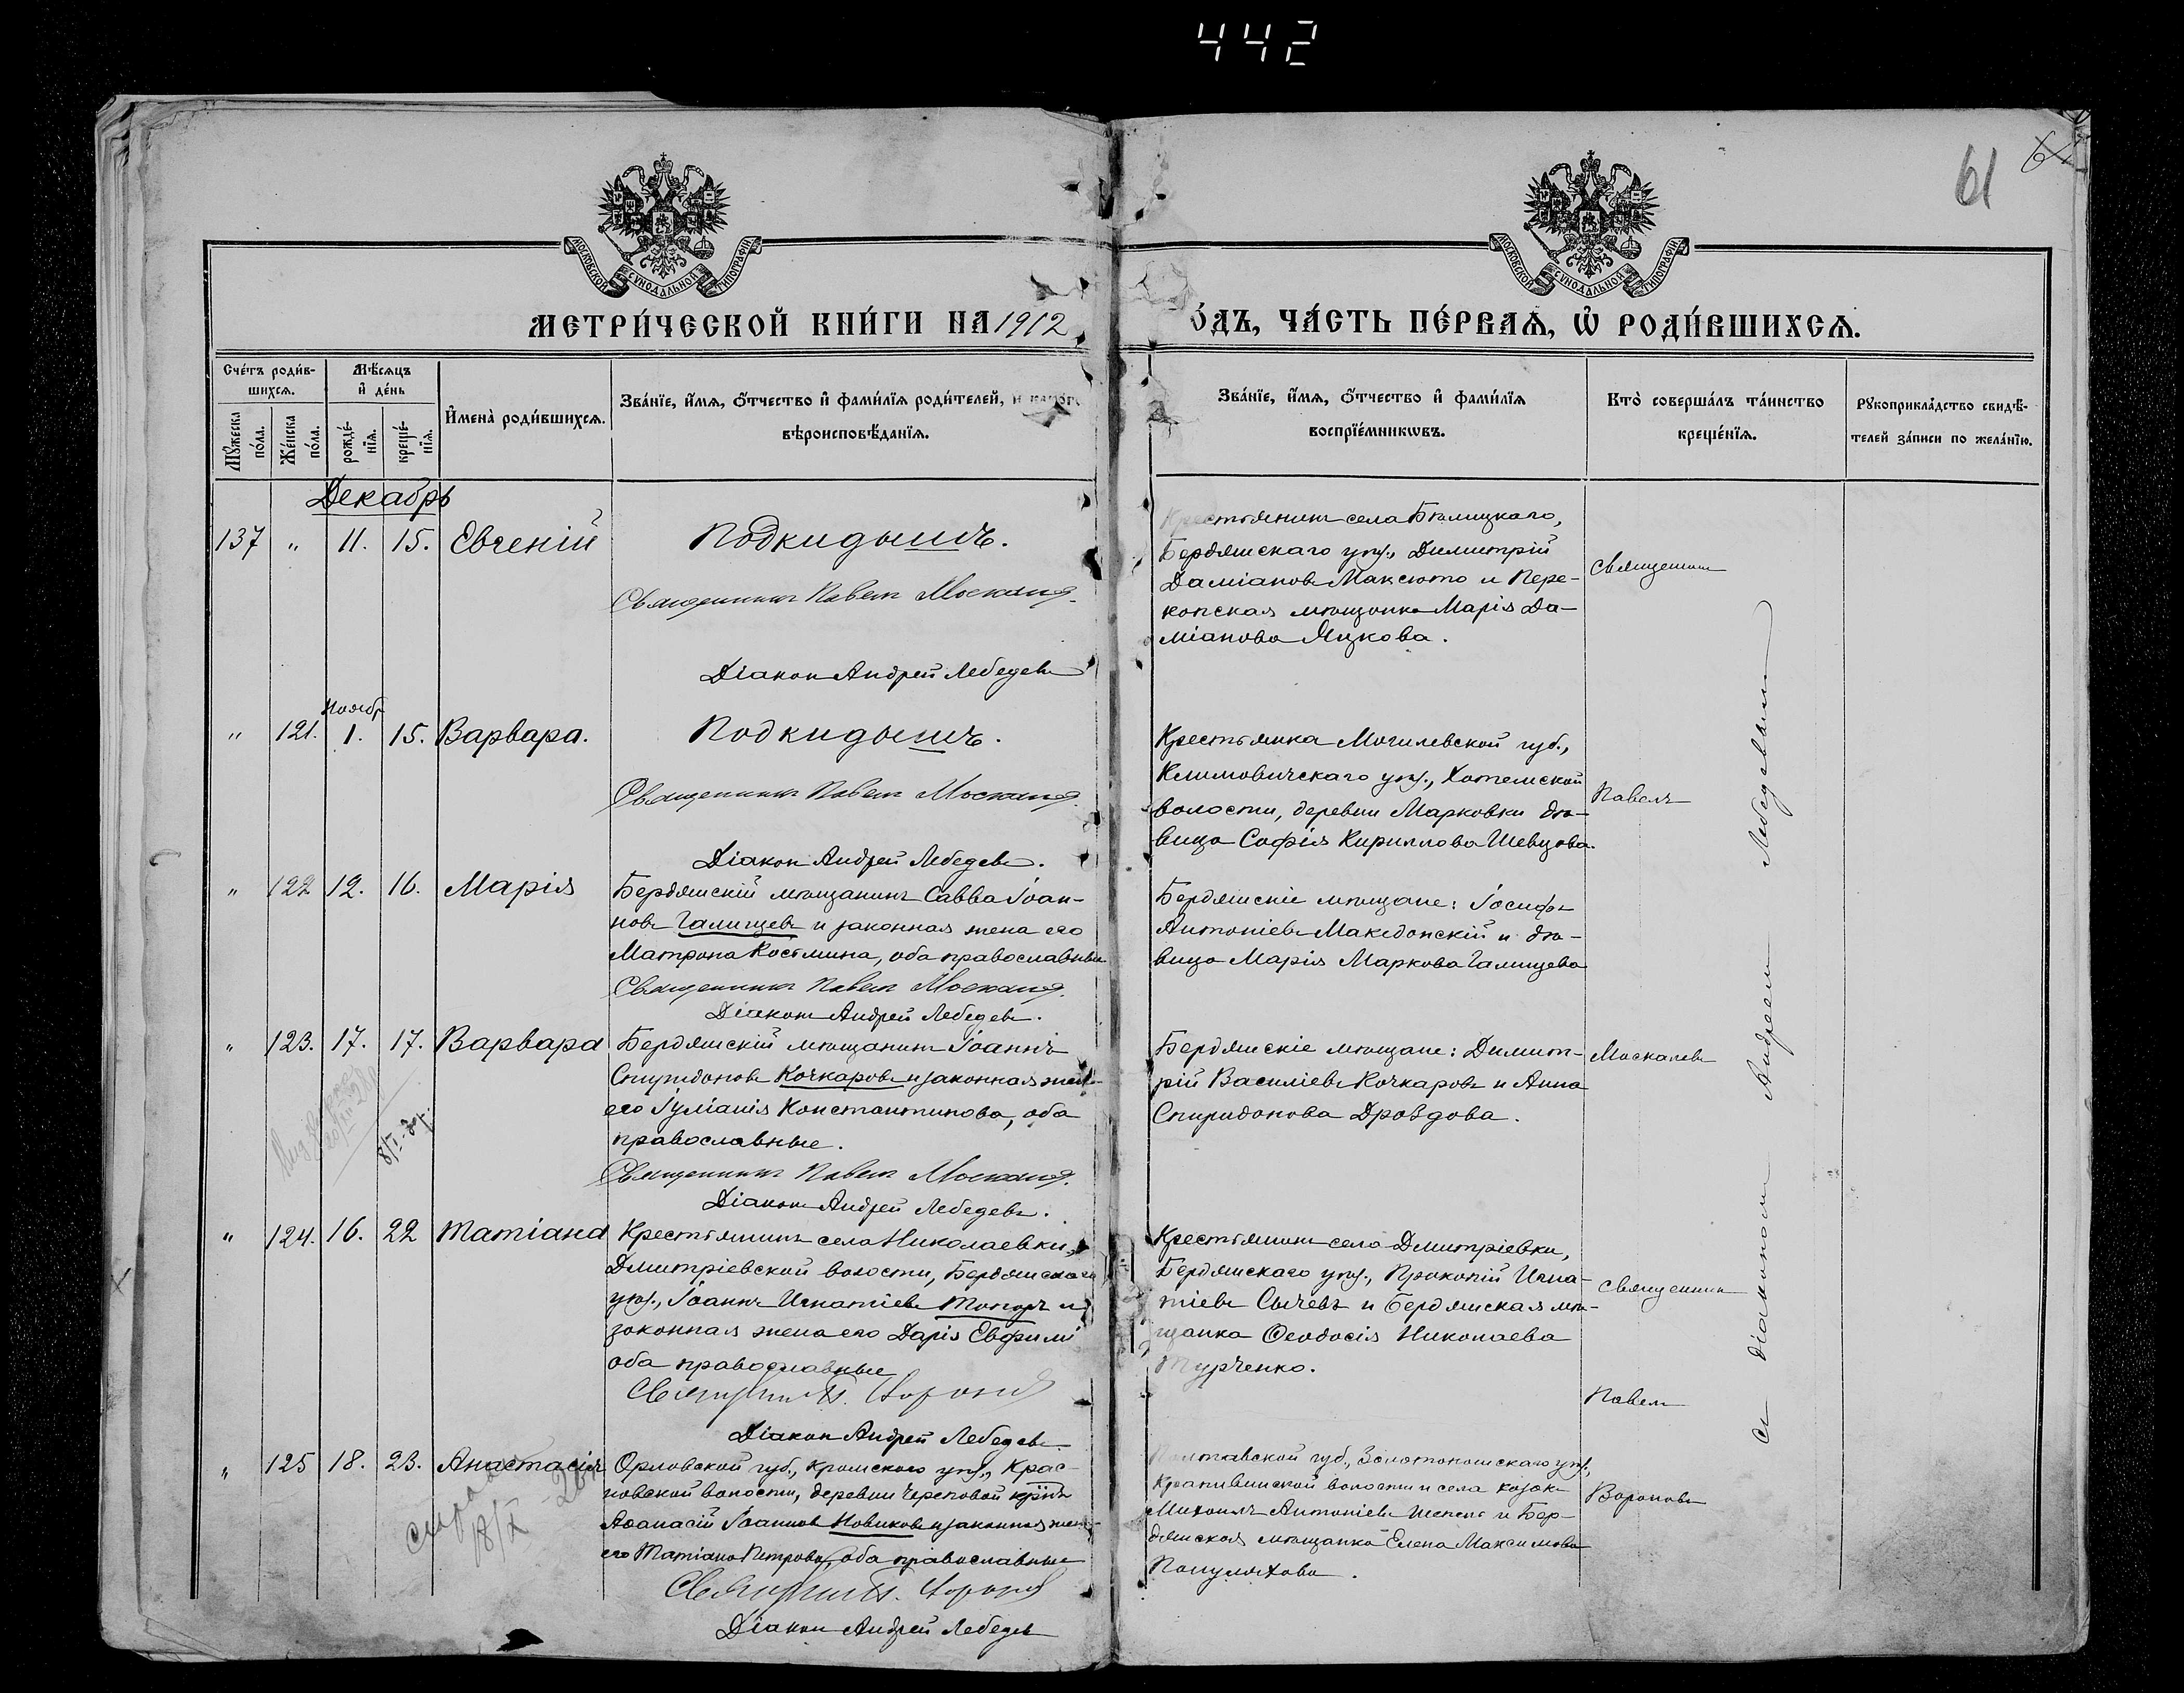 442
61
МОСКОВСКОЙ СѴНОДАЛЬНОЙ ТИПОГРАФІИ
МОСКОВСКОЙ СѴНОДАЛЬНОЙ ТИПОГРАФІИ
МЕТРИ́ЧЕСКОЙ КНИ́ГИ НА 1912
О́ДЪ, ЧА́СТЬ ПЕ́РВАЯ, Ѽ РОДИ́ВШИХСЯ.
Сче́тъ роди́в-
шихся.
Мѣ́сяцъ
и҆ де́нь
Мꙋ́жеска
по́ла.
Же́нска
по́ла.
рожде́-
нїѧ.
креще́-
нїѧ.
И҆мена̀ роди́вшихсѧ.
Зва́нїе, и҆́мѧ, ѻ҆́тчество и҆ фами́лїѧ роди́телей, и
вѣроисповѣ́данїѧ.
Зва́нїе, и҆́мѧ, ѻ҆́тчество и҆ фами́лїѧ
воспрїе́мникѡвъ.
Кто̀ соверша́лъ та́инство
креще́нїѧ.
Рꙋкоприкла́дство свидѣ́-
телей за́писи по жела́нїю.
Декабрь
137 " 11. 15. Евгеній
Подкидышъ.
Священникъ Павелъ Москалев
Діаконъ Андрей Лебедевъ
Крестьянинъ села Бѣлицкаго,
Бердянскаго уѣз., Димитрій
Даміановъ Максюто и Пере-
копская мѣщанка Марія Да-
міанова Яцкова.
Священникъ
Ноябр
" 121. 1. 15. Варвара.
Подкидышъ.
Священникъ Павелъ Москалев
Діаконъ Андрей Лебедевъ.
Крестьянка Могилевской губ.,
Климовичскаго уѣз., Хотемской
волости, деревни Марковки дѣ-
вица Софія Кириллова Шевцова.
Павелъ
" 122 12. 16. Марія
Бердянскій мѣщанинъ Савва Іоан-
новъ Галищевъ и законная жена его
Матрона Косьмина, оба православные
Священникъ Павелъ Москалев
Діаконъ Андрей Лебедевъ.
Бердянскіе мѣщане: Іосифъ
Антоніевъ Македонскій и дѣ-
вица Марія Маркова Галищева
" 123. 17. 17. Варвара
Бердянскій мѣщанинъ Іоаннъ
Спиридоновъ Кочкаровъ и законная жена
его Іуліанія Константинова, оба
православные.
Священникъ Павелъ Москалев
Діаконъ Андрей Лебедевъ.
Бердянскіе мѣщане: Димит-
рій Василіевъ Кочкаровъ и Анна
Спиридонова Дроздова.
Москалевъ
" 124. 16. 22 Татіана
Крестьянинъ села Николаевки,
Дмитріевской волости, Бердянскаго
уѣз., Іоаннъ Игнатіевъ Топоръ и
законная жена его Дарія Евфимі
оба православные
Священникъ П. Вороновъ
Діаконъ Андрей Лебедевъ
Крестьянинъ села Дмитріевки,
Бердянскаго уѣз., Прокопій Игна-
тіевъ Сычевъ и Бердянская мѣ-
щанка Ѳеодосія Николаева
Турченко.
Священникъ
Павелъ
" 125 18. 23. Анастасія
Орловской губ., Кромскаго уѣз., Крас-
новской волости, деревни Череповой кр-нъ
Аѳанасій Іоанновъ Новиковъ и законная жена
его Татіана Петрова, оба православные
Священникъ П. Вороновъ
Діаконъ Андрей Лебедевъ
Полтавской губ., Золотоношскаго уѣз.,
Кропивинской волости и села козакъ
Михаилъ Антоніевъ Шепель и Бер-
дянская мѣщанка Елена Максимова
Вороновъ
съ діакономъ Андреемъ Лебедевымъ